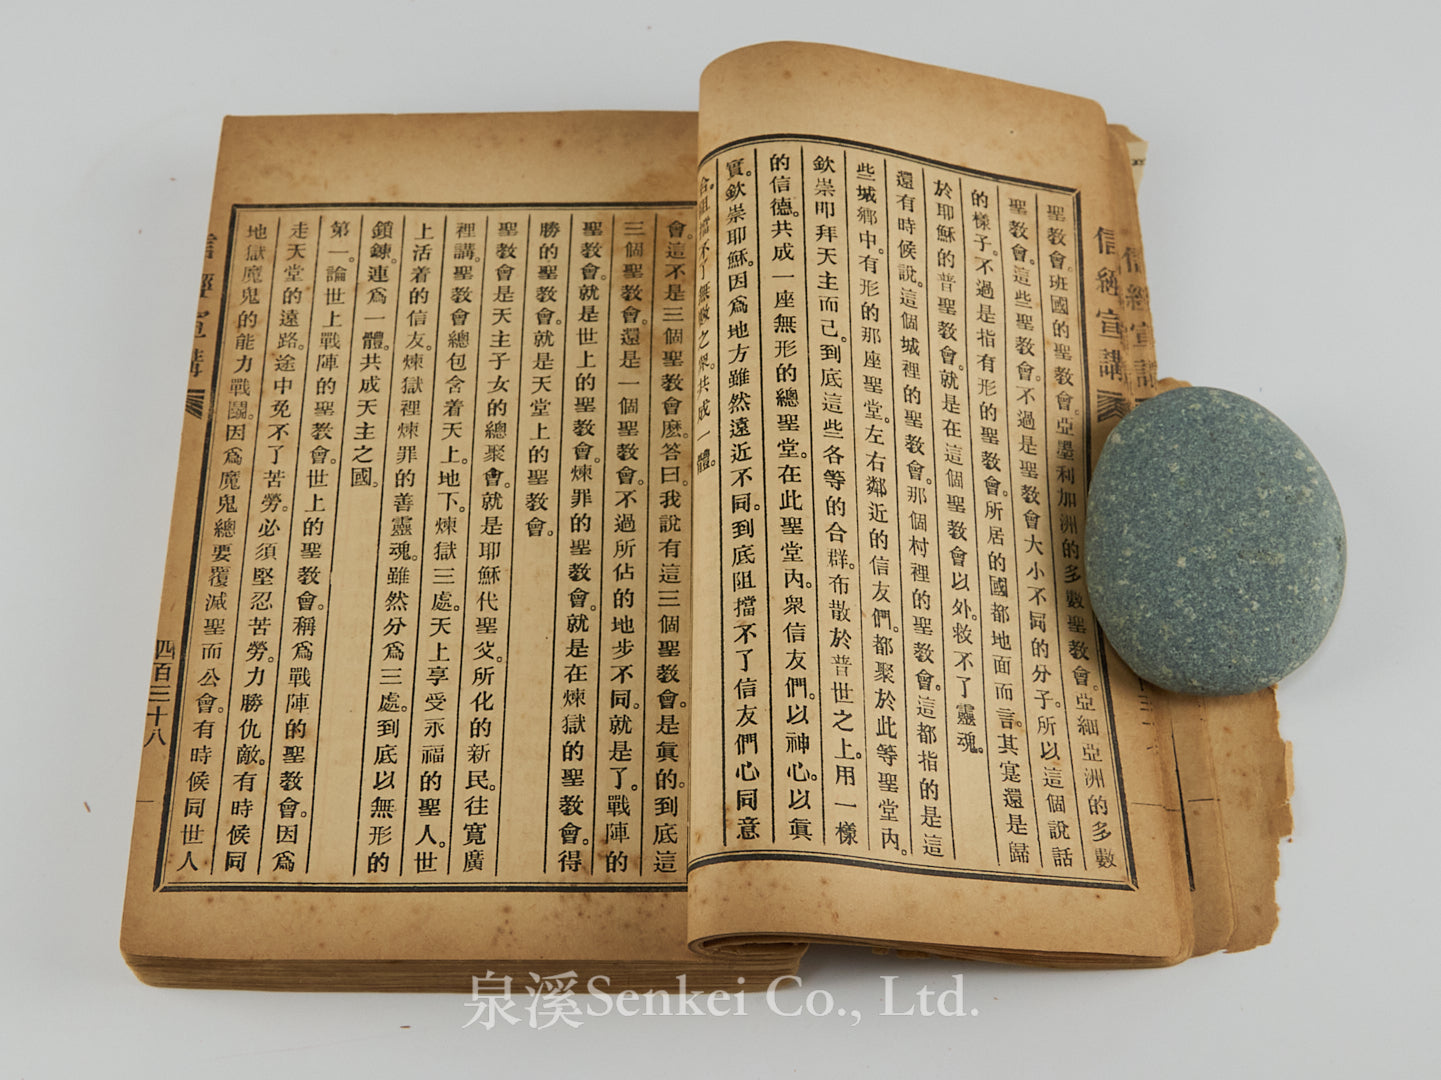 信經宣講
信經宣講
聖教會。班國的聖教會。亞墨利加洲的多數聖教會。亞細亞洲的多數
聖教會。這些聖教會。不過是聖教會大小不同的分子。所以這個說話
的樣子。不過是指有形的聖教會。所居的國都地面而言。其寔還是歸
於耶穌的普聖教會。就是在這個聖教會以外。救不了靈魂。
還有時候說。這個城裡的聖教會。那個村裡的聖教會。這都指的是這
些城鄉中。有形的那座聖堂。左右鄰近的信友們。都聚於此等聖堂內。
欽崇叩拜天主而已。到底這些各等的合群。布散於普世之上。用一樣
的信德。共成一座無形的總聖堂。在此聖堂內。衆信友們。以神心。以眞
實。欽崇耶穌。因爲地方雖然遠近不同。到底阻擋不了信友們心同意
合。阻擋不了無數之衆。共成一體。
會。這不是三個聖教會麽。答曰。我說有這三個聖教會。是眞的。到底這
三個聖教會。還是一個聖教會。不過所佔的地步不同。就是了。戰陣的
聖教會。就是世上的聖教會。煉罪的聖教會。就是在煉獄的聖教會。得
勝的聖教會。就是天堂上的聖教會。
聖教會是天主子女的總聚會。就是耶穌代聖父。所化的新民。往寬廣
裡講。聖教會總包含着天上。地下。煉獄三處。天上享受永福的聖人。世
上活着的信友。煉獄裡煉罪的善靈魂。雖然分爲三處。到底以無形的
鎖鍊。連爲一體。共成天主之國。
第一。論世上戰陣的聖教會。世上的聖教會。稱爲戰陣的聖教會。因爲
走天堂的遠路。途中免不了苦勞。必須堅忍苦勞。力勝仇敵。有時候同
地獄魔鬼的能力戰鬬。因爲魔鬼總要覆滅聖而公會。有時候同世人
信經宣講
四百三十八
泉溪Senkei Co., Ltd.